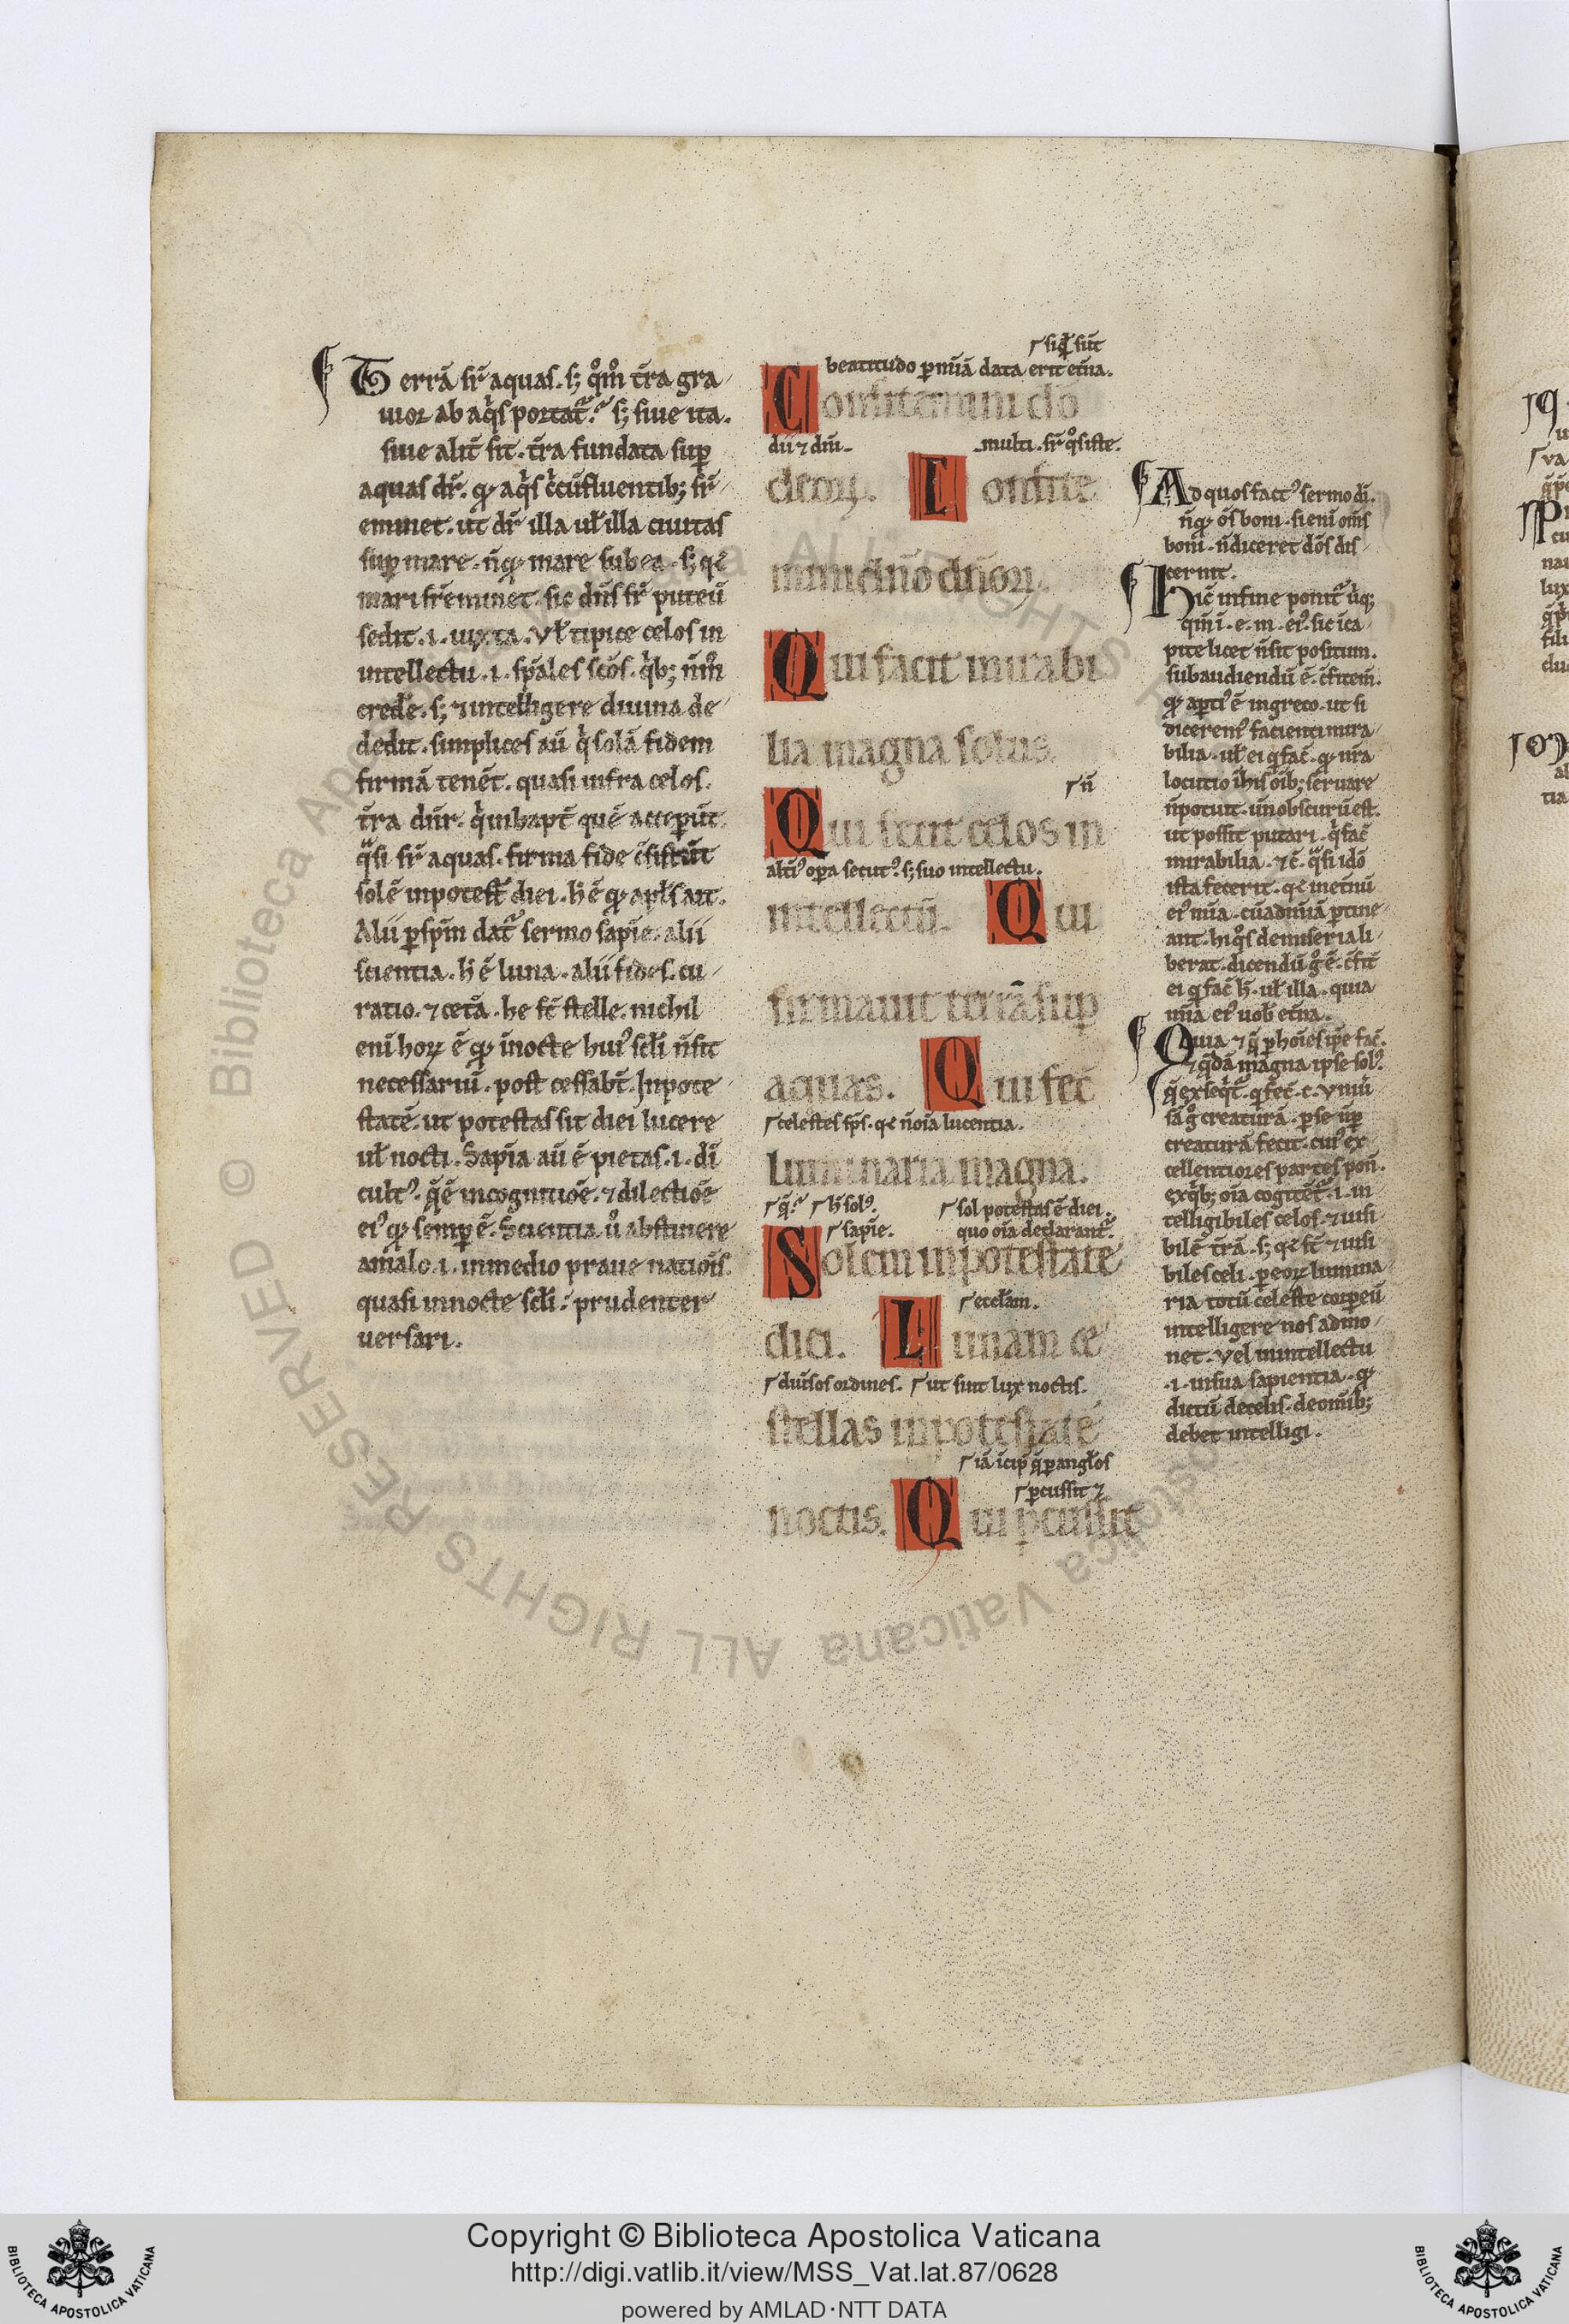 Terrā sr̄ aquas. s; qm̄ t̄ra gra
uior ab aq̄s portat̄. s; siue ita.
siue alit̄ sit. t̄ra fundata sup̄
aquas dr̄. qꝫ aq̄s c̄cūfluentib; sr̄
eminet. ut dr̄ illa ul̄ illa ciuitas
sup̄ mare. n̄ qꝫ mare sub ea. s; qꝫ
mari sr̄eminet. sic dn̄s sr̄ puteū
sedit .i. iuxta. Vl̄ tipice celos in
intellectu .i. sp̄ales scōs. q̄b; n̄ m̄
crede. s; ⁊ intelligere diuina de
dedit. simplices aū q̄ solā fidem
firmā tenēt. quasi infra celos.
t̄ra dn̄r. q̄ in bapt̄ quē acceper̄ūt
q̄si sr̄ aquas. firma fide c̄sistūt
solē in potest̄ diei. h̄ ē qꝫ apl̄s ait.
Alii ꝑ sp̄m dat̄ sermo sapīe. alii
scientia. h̄ ē luna. alii fides. cu
ratio. ⁊ cet̄a. he st̄ stelle. nichil
eni hoꝝ ē qꝫ in nocte hui' scl̄i n̄ sit
necessariū. post cessabt̄. In pote
statē. ut potestas sit diei lucere
ul̄ nocti. Sapīa aū ē pietas .i. di
cult'. q̄ ē in cognitiōe. ⁊ dilectiōe
ei' qꝫ semp̄ ē. Scientia ū abstinere
a malo .i. in medio praue natiōis.
quasi in nocte scl̄i: prudenter
uersari.
siq̄ sūt
beatitudo ꝑ mīā data erit etn̄a.
Confitemini do
dii ⁊ dn̄i. multi. sr̄ q̄s iste.
deoꝝ. Confite
mini dn̄o dn̄oꝝ.
Qui facit mirabi
lia magna solus.
n̄
Qui fecit celos in
alti' oꝑa secut'. s; suo intellectu.
intellectū. Qui
firmauit terrā sup̄
aquas. Qui fec̄
celestes sp̄s. qꝫ n̄ oīa lucentia.
luminaria magna.
q̄. h̄ sol'. sol potestas ē diei.
sapīe. quo oīa declarant̄.
Solem in potestate
eccl̄am.
diei. Lunam ⁊
diuīsos ordines. ut sint lux noctis.
stellas in potestate
iā icip̄ q̄ ꝑ angl̄os
ꝑcussit ⁊
noctis. Qui ꝑcussit
Ad quos fact' sermo di.
n̄ qꝫ ōs boni. si eni om̄s
boni. n̄ diceret dōs dis
cernit.
Hic in fine ponit̄ ūq;
qm̄ i. e. m. ei'. sic ī ca
pite licet n̄ sit positum.
subaudiendū ē. c̄fitem̄.
qꝫ apti' ē in greco. ut si
dicerem' facienti mira
bilia. ul̄ ei q̄ fac̄. qꝫ nr̄a
locutio ī his oīb; seruare
n̄ potuit. ū n̄ obscurū est.
ut possit putari. q̄ fac̄
mirabilia. ⁊c̄. q̄si idō
ista fecerit. qꝫ in etn̄ū
ei' mīa. cū ad mīā ꝑtine
ant. hi q̄s de miseria li
berat. dicendū g̊ ē. c̄fit̄
ei q̄ fac̄ h̄. ul̄ illa. quia
mīa ei' uob etn̄a.
Quia ⁊ q̄ ꝑ hoīes ip̄e fac̄.
⁊ q̄dā magna ipse sol'.
q̄ exseq̄t̄. q̄ fec̄. c. Vniū
sā g̊ creaturā. ꝑ se sup̄
creaturā fecit. cui' ex
cellentiores partes pon̄.
ex q̄b; oīa cogitēt̄ .i. in
telligibiles celos. ⁊ uisi
bilē t̄rā. s; qꝫ st̄ ⁊ uisi
biles celi. ꝑ eoꝝ lumina
ria totū celeste corpeū
intelligere nos admo
net. Vel in intellectu
.i. in sua sapientia. qꝫ
dictū de celis. de om̄ib;
debet intelligi.
© Biblioteca Apostolica Vaticana ALL RIGHTS RESERVED
Copyright © Biblioteca Apostolica Vaticana
http://digi.vatlib.it/view/MSS_Vat.lat.87/0628
powered by AMLAD·NTT DATA
BIBLIOTECA APOSTOLICA VATICANA
BIBLIOTECA APOSTOLICA VATICANA